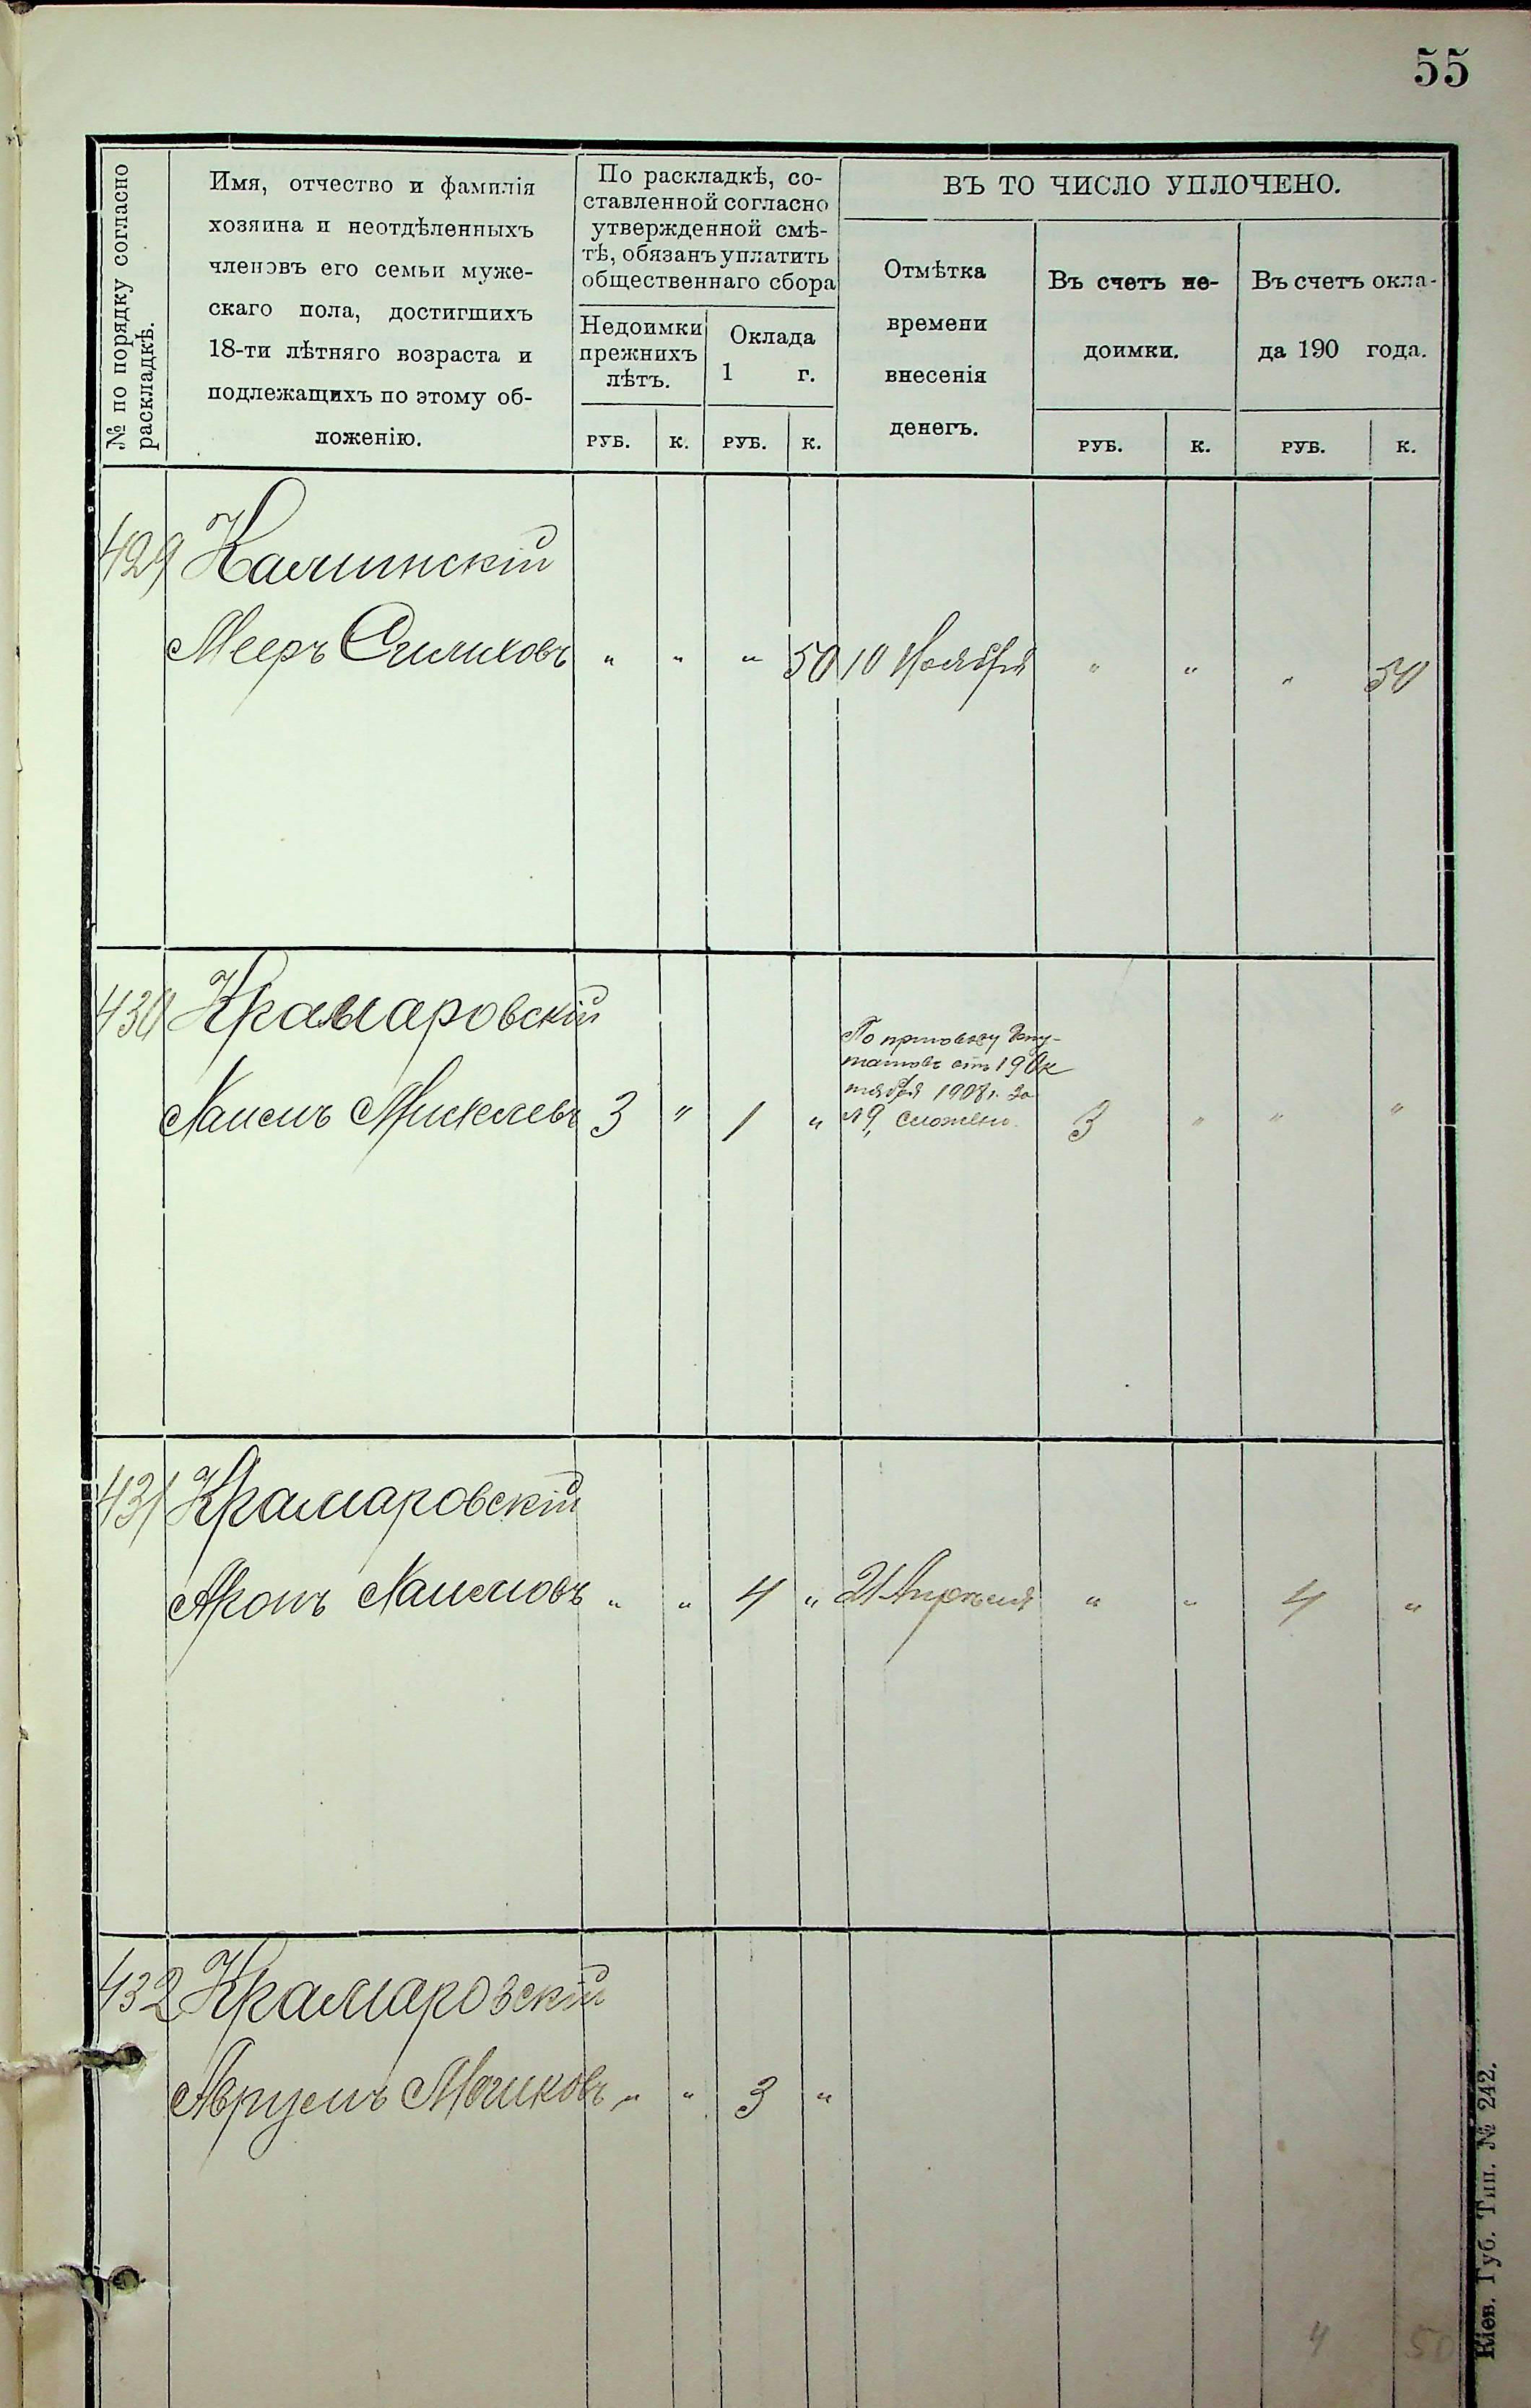 55
№ по порядку согласно
раскладкѣ.
Имя, отчество и фамилія
хозяина и неотдѣленныхъ
членовъ его семьи муже-
скаго пола, достигшихъ
18-ти лѣтняго возраста и
подлежащихъ по этому об-
ложенію.
По раскладкѣ, со-
ставленной согласно
утвержденной смѣ-
тѣ, обязанъ уплатить
общественнаго сбора
Недоимки
прежнихъ
лѣтъ.
Оклада
1 г.
РУБ. К. РУБ. К.
ВЪ ТО ЧИСЛО УПЛОЧЕНО.
Отмѣтка
времени
внесенія
денегъ.
Въ счетъ не-
доимки.
Въ счетъ окла-
да 190 года.
РУБ. К. РУБ. К.
429 Калинскій
Мееръ " " " 50 10 Ноября " " " 50
430 Крамаровскій
По приговору Депу-
татовъ отъ 19 Ок
тября 1908 г. за
Хаимъ 3 " 1 " № 9, сложено. 3 " " "
431 Крамаровскій
Аронъ Хаимовъ " " 4 " 21 Апрѣля " " 4 "
432 Крамаровскій
Аврумъ Мошковъ " " 3 "
4 50
Кіев. Губ. Тип. № 242.